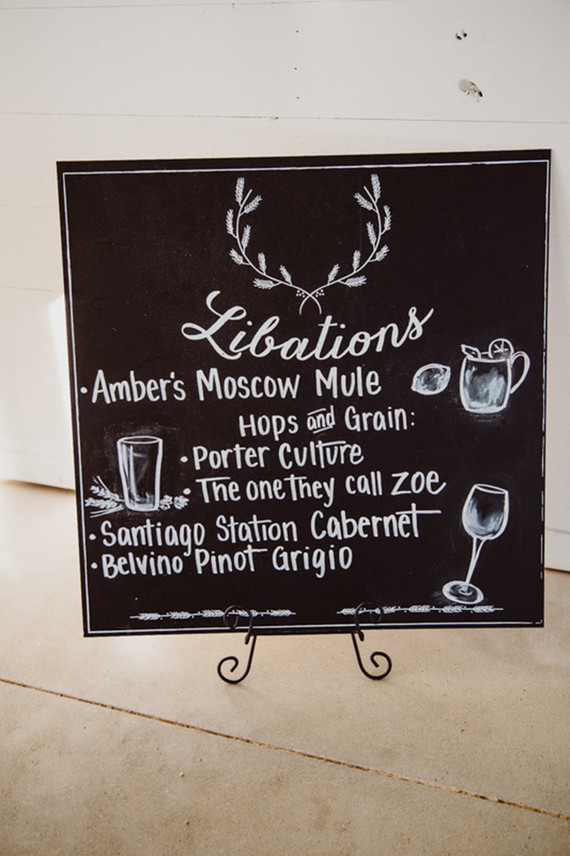 Libations
• Amber's Moscow Mule
Hops and Grain:
• Porter Culture
• The one they call Zoe
• Santiago Station Cabernet
• Belvino Pinot Grigio